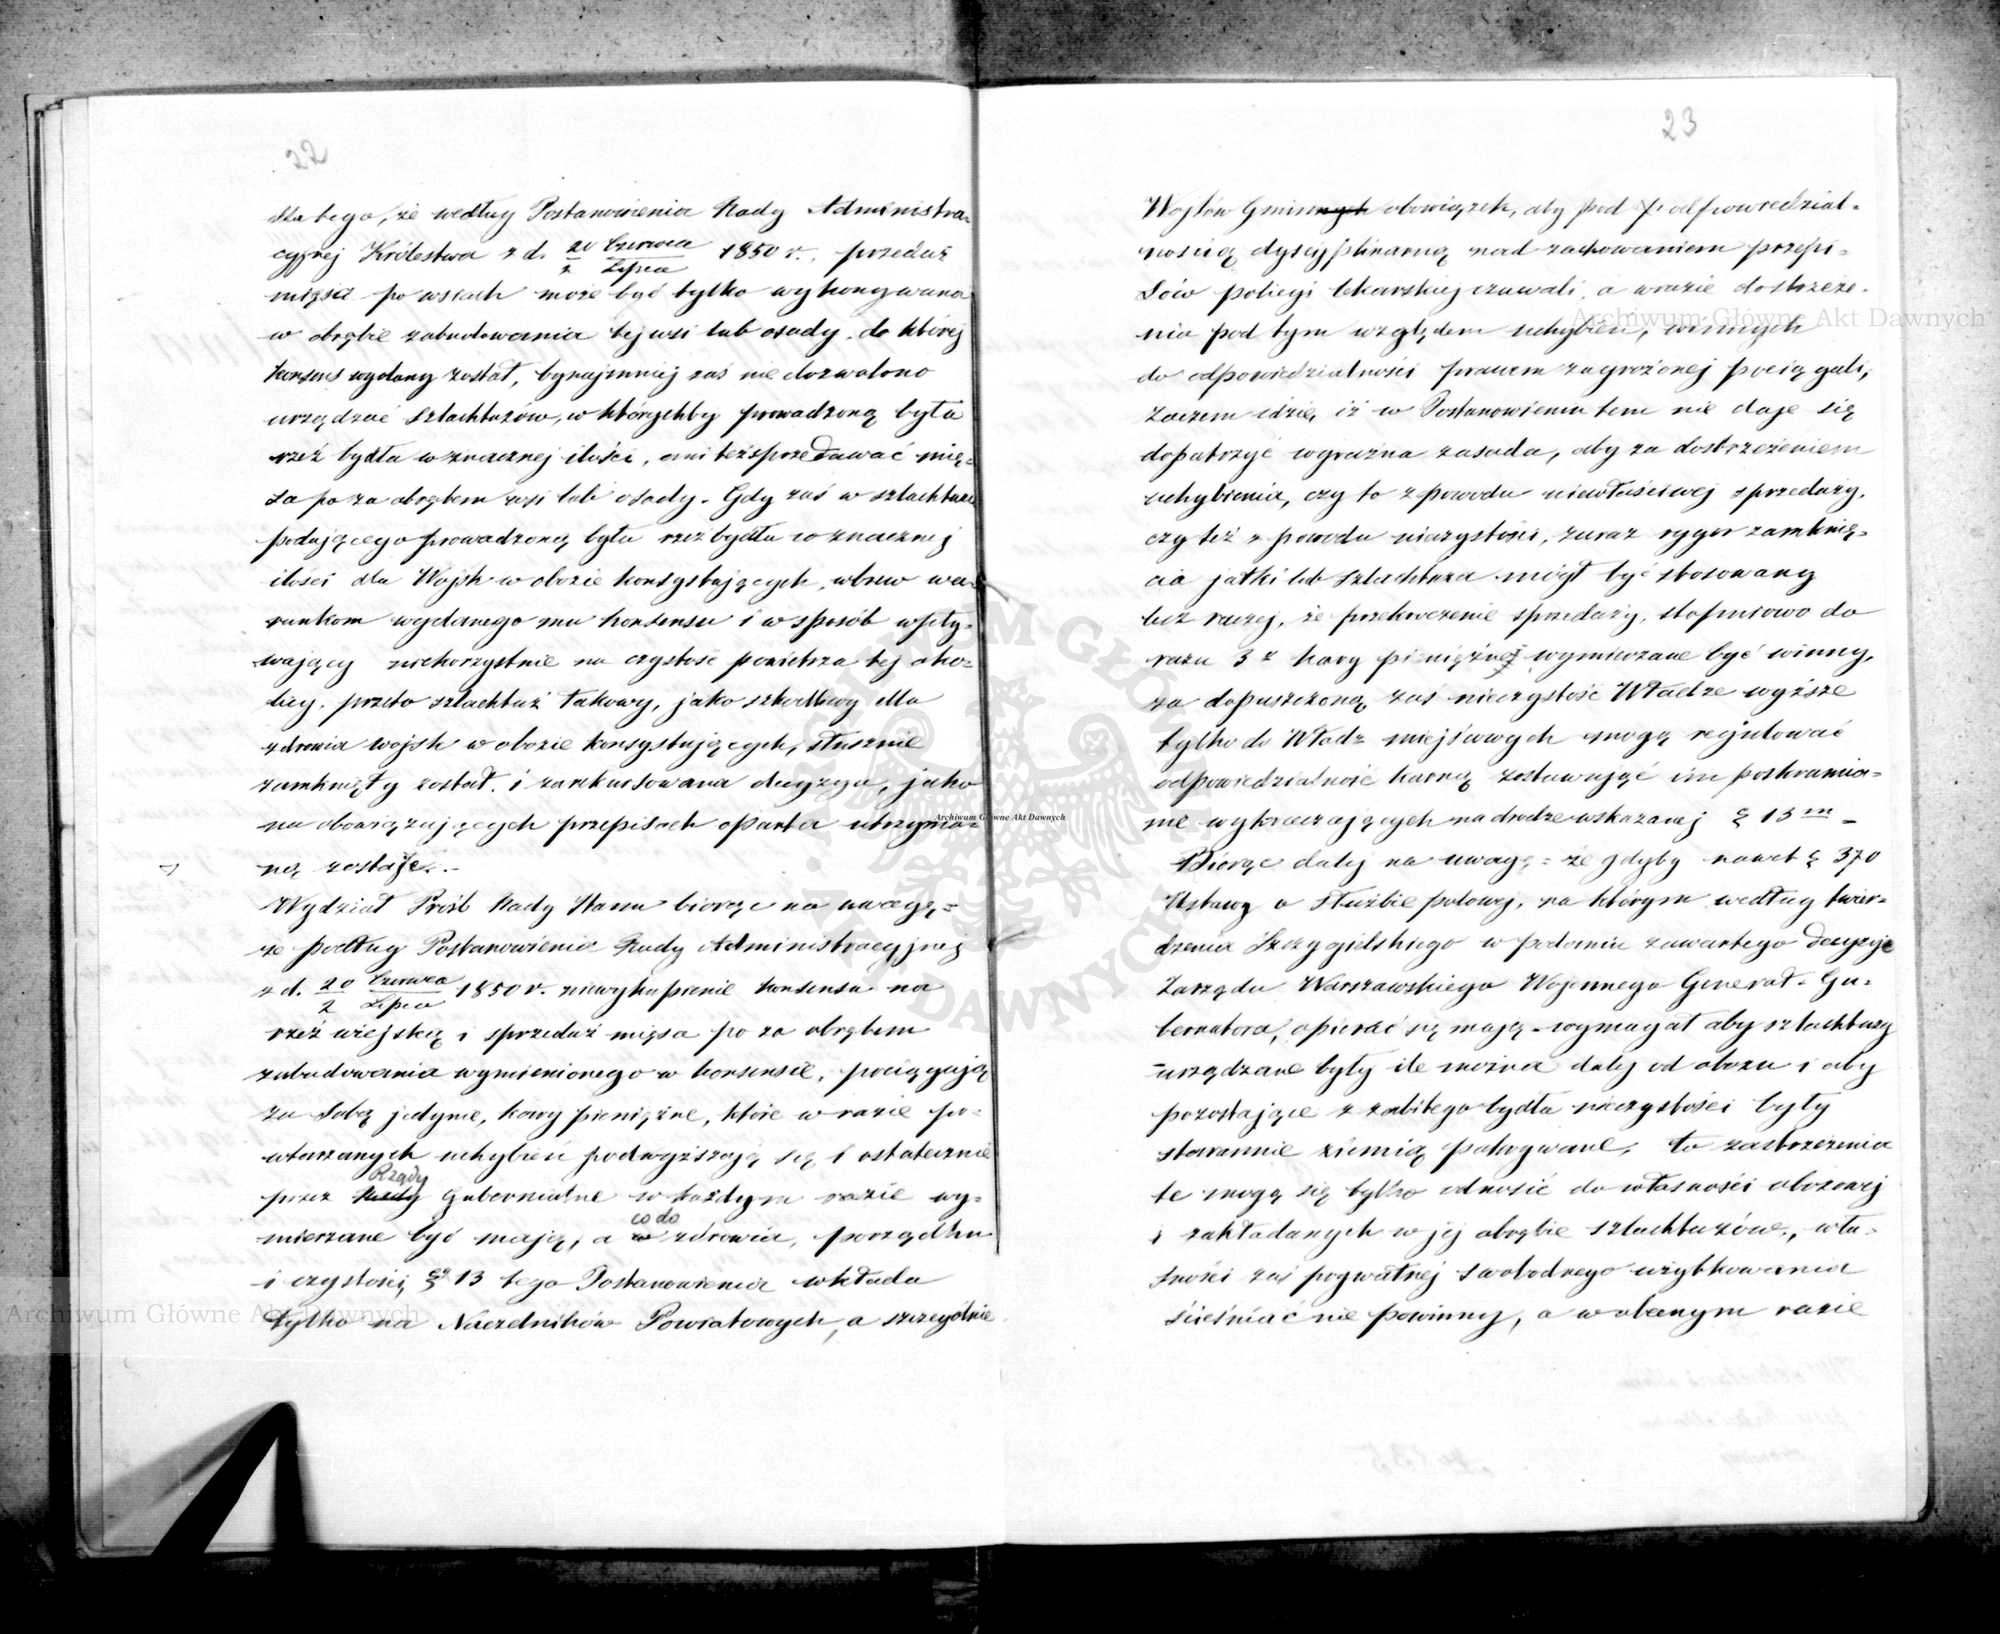 22
dla tego, że według Postanowienia Rady Administra-
cyjnej Królestwa z d. 20 Czerwca / 2 Lipca 1850 r. przedaż
mięsa po wsiach może być tylko wykonywana
w obrębie zabudowania tej wsi lub osady, do której
konsens wydany został, bynajmniej zaś nie dozwolono
urządzać szlachtuzów, w którychby prowadzoną była
rzeź bydła w znacznej ilości, ani też sprzedawać mię-
sa po za obrębem wsi lub osady. Gdy zaś w szlachtuzie
podającego prowadzoną była rzeź bydła w znacznej
ilości dla Wojsk w obozie konsystujących, wbrew wa-
runkom wydanego mu konsensu i w sposób wpły-
wający niekorzystnie na czystość powietrza tej oko-
licy, przeto szlachtuz takowy, jako szkodliwy dla
zdrowia wojsk w obozie konsystujących, słusznie
zamknięty został, i zarekursowana decyzya, jako
na obowiązujących przepisach oparta utrzyma-
ną zostaje.
Wydział Próśb Rady Stanu biorąc na uwagę =
że podług Postanowienia Rady Administracyjnej
z d. 20 Czerwca / 2 Lipca 1850 r. niewykupienie konsensu na
rzeź wiejską i sprzedaż mięsa po za obrębem
zabudowania wymienionego w konsensie, pociągają
za sobą jedynie, kary pieniężne, które w razie po-
wtarzanych uchybień podwyższają się i ostatecznie
przez Rządy Gubernialne w każdym razie wy-
mierzane być mają, a co do zdrowia, porządku
i czystości, § 13 tego Postanowienia wkłada
tylko na Naczelników Powiatowych, a szczególnie
23
Wojtów Gmin obowiązek, aby pod odpowiedzial-
nością dyscyplinarną nad zachowaniem przepi-
sów policyi lekarskiej czuwali, a w razie dostrzeże-
nia pod tym względem uchybień, winnych
do odpowiedzialności prawem zagrożonej pociągali,
zaczem idzie, iż w Postanowieniu tem nie daje się
dopatrzyć wyraźna zasada, aby za dostrzeżeniem
uchybienia, czy to z powodu niewłaściwej sprzedaży,
czy też z powodu nieczystości, zaraz rygor zamknię-
cia jatki lub szlachtuza mógł być stosowany
lecz raczej, że przekroczenie sprzedaży, stopniowo do
razu 3go kary pieniężnej wymierzane być winny,
za dopuszczoną zaś nieczystość Władze wyższe
tylko do Władz miejscowych mogą regulować
odpowiedzialność karną zostawując im poskramia-
nie wykraczających na drodze wskazanej § 13m –
Biorąc dalej na uwagę = że gdyby nawet § 370
Ustawy o służbie polowej, na którym według twier-
dzenia Szczygielskiego w podaniu zawartego decyzje
Zarządu Warszawskiego Wojennego Generał-Gu-
bernatora, opierać się mają – wymagał aby szlachtuzy
urządzane były ile można dalej od obozu i aby
pozostające z zabitego bydła nieczystości były
starannie ziemią pokrywane, to zastrzeżenia
te mogą się tylko odnosić do własności obozowej
i zakładanych w jej obrębie szlachtuzów, wła-
sności zaś prywatnej swobodnego użytkowania
ścieśniać nie powinny, a w obecnym razie
Archiwum Główne Akt Dawnych
Archiwum Główne Akt Dawnych
Archiwum Główne Akt Dawnych